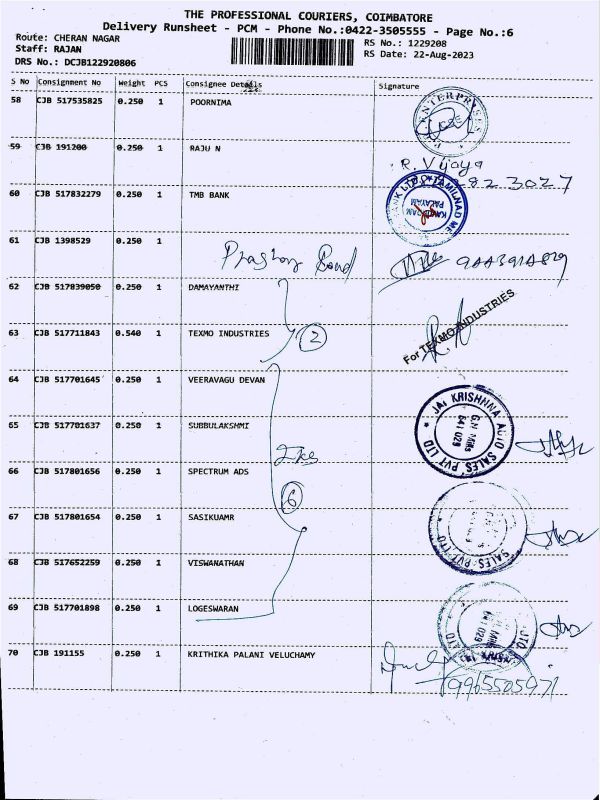 THE PROFESSIONAL COURIERS, COIMBATORE
Delivery Runsheet - PCM - Phone No.:0422-3505555 - Page No.:6
Route: CHERAN NAGAR
Staff: RAJAN
DRS No.: DCJB122920806
RS No.: 1229208
RS Date: 22-Aug-2023
S No Consignment No Weight PCS Consignee Details Signature
58 CJB 517535825 0.250 1 POORNIMA
ENTERPRISES
59 CJB 191200 0.250 1 RAJU N
R. Vijaya
823027
60 CJB 517832279 0.250 1 TMB BANK
BANK LTD TAMILNAD ME
PALAYAM
61 CJB 1398529 0.250 1
62 CJB 517839050 0.250 1 DAMAYANTHI
63 CJB 517711843 0.540 1 TEXMO INDUSTRIES 2
For TEXMO INDUSTRIES
64 CJB 517701645 0.250 1 VEERAVAGU DEVAN
65 CJB 517701637 0.250 1 SUBBULAKSHMI
JAI KRISHNNA AUTO SALES PVT LTD
G.N Mills
641 029
66 CJB 517801656 0.250 1 SPECTRUM ADS
6
67 CJB 517801654 0.250 1 SASIKUAMR
SALES PVT LTD
68 CJB 517652259 0.250 1 VISWANATHAN
69 CJB 517701898 0.250 1 LOGESWARAN
70 CJB 191155 0.250 1 KRITHIKA PALANI VELUCHAMY
9965505971